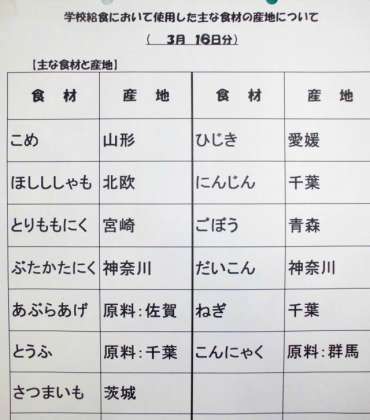 学校給食において使用した主な食材の産地について
( 3月 16日分)
【主な食材と産地】
食 材 産 地 食 材 産 地
こめ 山形 ひじき 愛媛
ほしししゃも 北欧 にんじん 千葉
とりももにく 宮崎 ごぼう 青森
ぶたかたにく 神奈川 だいこん 神奈川
あぶらあげ 原料:佐賀 ねぎ 千葉
とうふ 原料:千葉 こんにゃく 原料:群馬
さつまいも 茨城